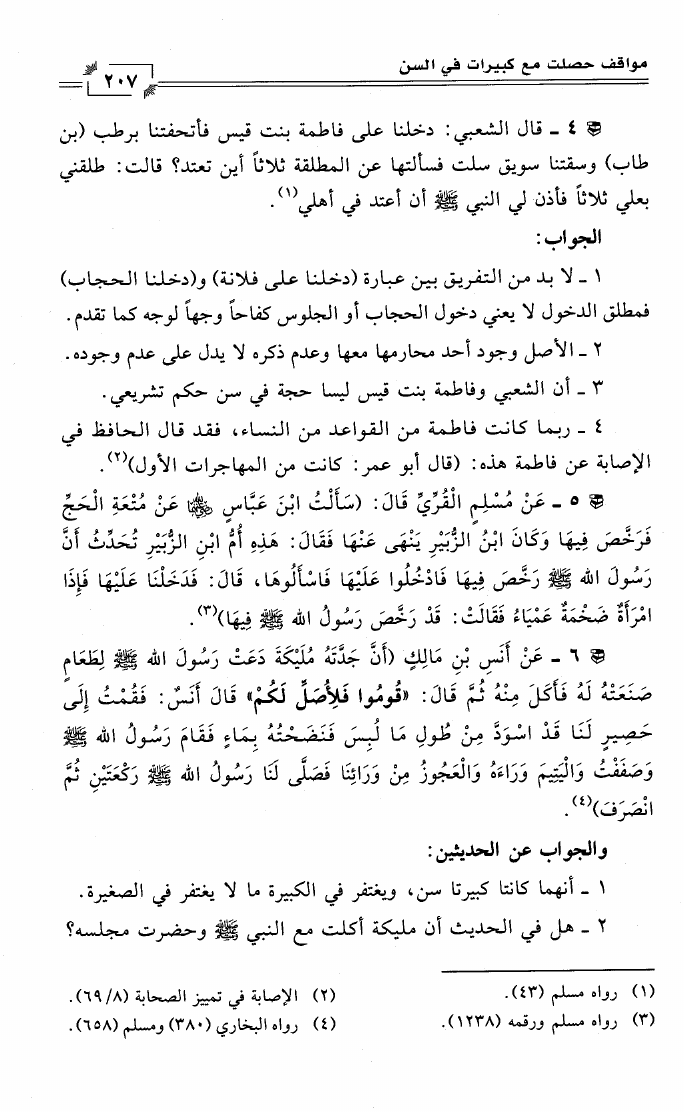 مواقف حصلت مع كبيرات في السن
٢٠٧
٤ ـ قال الشعبي: دخلنا على فاطمة بنت قيس فأتحفتنا برطب (بن
طاب) وسقتنا سويق سلت فسألتها عن المطلقة ثلاثاً أين تعتد؟ قالت: طلقني
بعلي ثلاثاً فأذن لي النبي ﷺ أن أعتد في أهلي(١).
الجواب:
١ ـ لا بد من التفريق بين عبارة (دخلنا على فلانة) و(دخلنا الحجاب)
فمطلق الدخول لا يعني دخول الحجاب أو الجلوس كفاحاً وجهاً لوجه كما تقدم.
٢ ـ الأصل وجود أحد محارمها معها وعدم ذكره لا يدل على عدم وجوده.
٣ ـ أن الشعبي وفاطمة بنت قيس ليسا حجة في سن حكم تشريعي.
٤ ـ ربما كانت فاطمة من القواعد من النساء، فقد قال الحافظ في
الإصابة عن فاطمة هذه: (قال أبو عمر: كانت من المهاجرات الأول)(٢).
٥ ـ عَنْ مُسْلِمٍ الْقُرِّيِّ قَالَ: (سَأَلْتُ ابْنَ عَبَّاسٍ ﵄ عَنْ مُتْعَةِ الْحَجِّ
فَرَخَّصَ فِيهَا وَكَانَ ابْنُ الزُّبَيْرِ يَنْهَى عَنْهَا فَقَالَ: هَذِهِ أُمُّ ابْنِ الزُّبَيْرِ تُحَدِّثُ أَنَّ
رَسُولَ الله ﷺ رَخَّصَ فِيهَا فَادْخُلُوا عَلَيْهَا فَاسْأَلُوهَا، قَالَ: فَدَخَلْنَا عَلَيْهَا فَإِذَا
امْرَأَةٌ ضَخْمَةٌ عَمْيَاءُ فَقَالَتْ: قَدْ رَخَّصَ رَسُولُ الله ﷺ فِيهَا)(٣).
٦ ـ عَنْ أَنَسِ بْنِ مَالِكٍ (أَنَّ جَدَّتَهُ مُلَيْكَةَ دَعَتْ رَسُولَ الله ﷺ لِطَعَامٍ
صَنَعَتْهُ لَهُ فَأَكَلَ مِنْهُ ثُمَّ قَالَ: «قُومُوا فَلِأُصَلِّ لَكُمْ» قَالَ أَنَسٌ: فَقُمْتُ إِلَى
حَصِيرٍ لَنَا قَدْ اسْوَدَّ مِنْ طُولِ مَا لُبِسَ فَنَضَحْتُهُ بِمَاءٍ فَقَامَ رَسُولُ الله ﷺ
وَصَفَفْتُ وَالْيَتِيمَ وَرَاءَهُ وَالْعَجُوزُ مِنْ وَرَائِنَا فَصَلَّى لَنَا رَسُولُ الله ﷺ رَكْعَتَيْنِ ثُمَّ
انْصَرَفَ)(٤).
والجواب عن الحديثين:
١ ـ أنهما كانتا كبيرتا سن، ويغتفر في الكبيرة ما لا يغتفر في الصغيرة.
٢ ـ هل في الحديث أن مليكة أكلت مع النبي ﷺ وحضرت مجلسه؟
(١) رواه مسلم (٤٣).
(٢) الإصابة في تمييز الصحابة (٦٩/٨).
(٣) رواه مسلم ورقمه (١٢٣٨).
(٤) رواه البخاري (٣٨٠) ومسلم (٦٥٨).